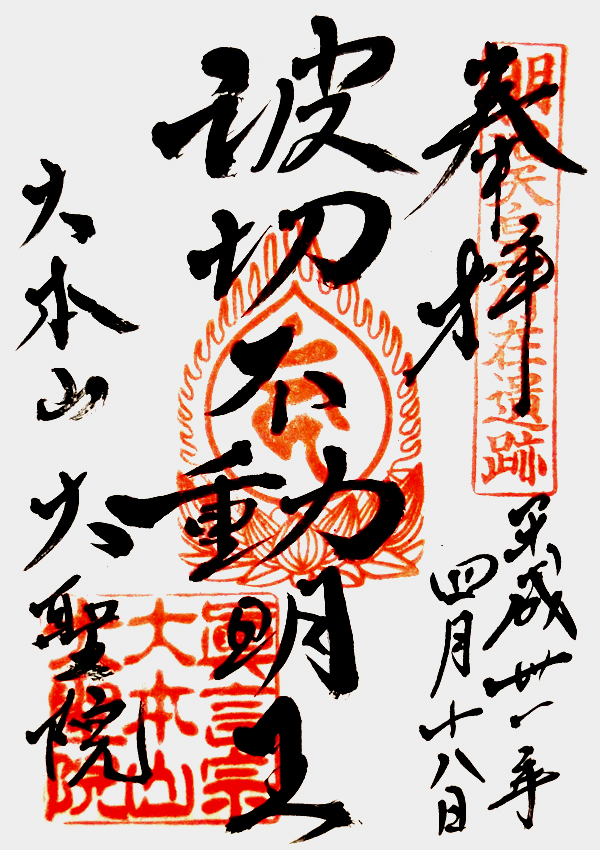 奉拝
明治天皇行在遺跡
平成廿一年
四月十八日
波切不動明王
大本山 大聖院
真言宗
大本山
大聖院